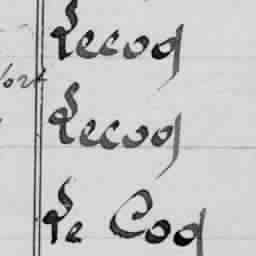 Lecoq
Lecoq
Le Coq